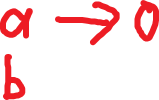 a → 0
b